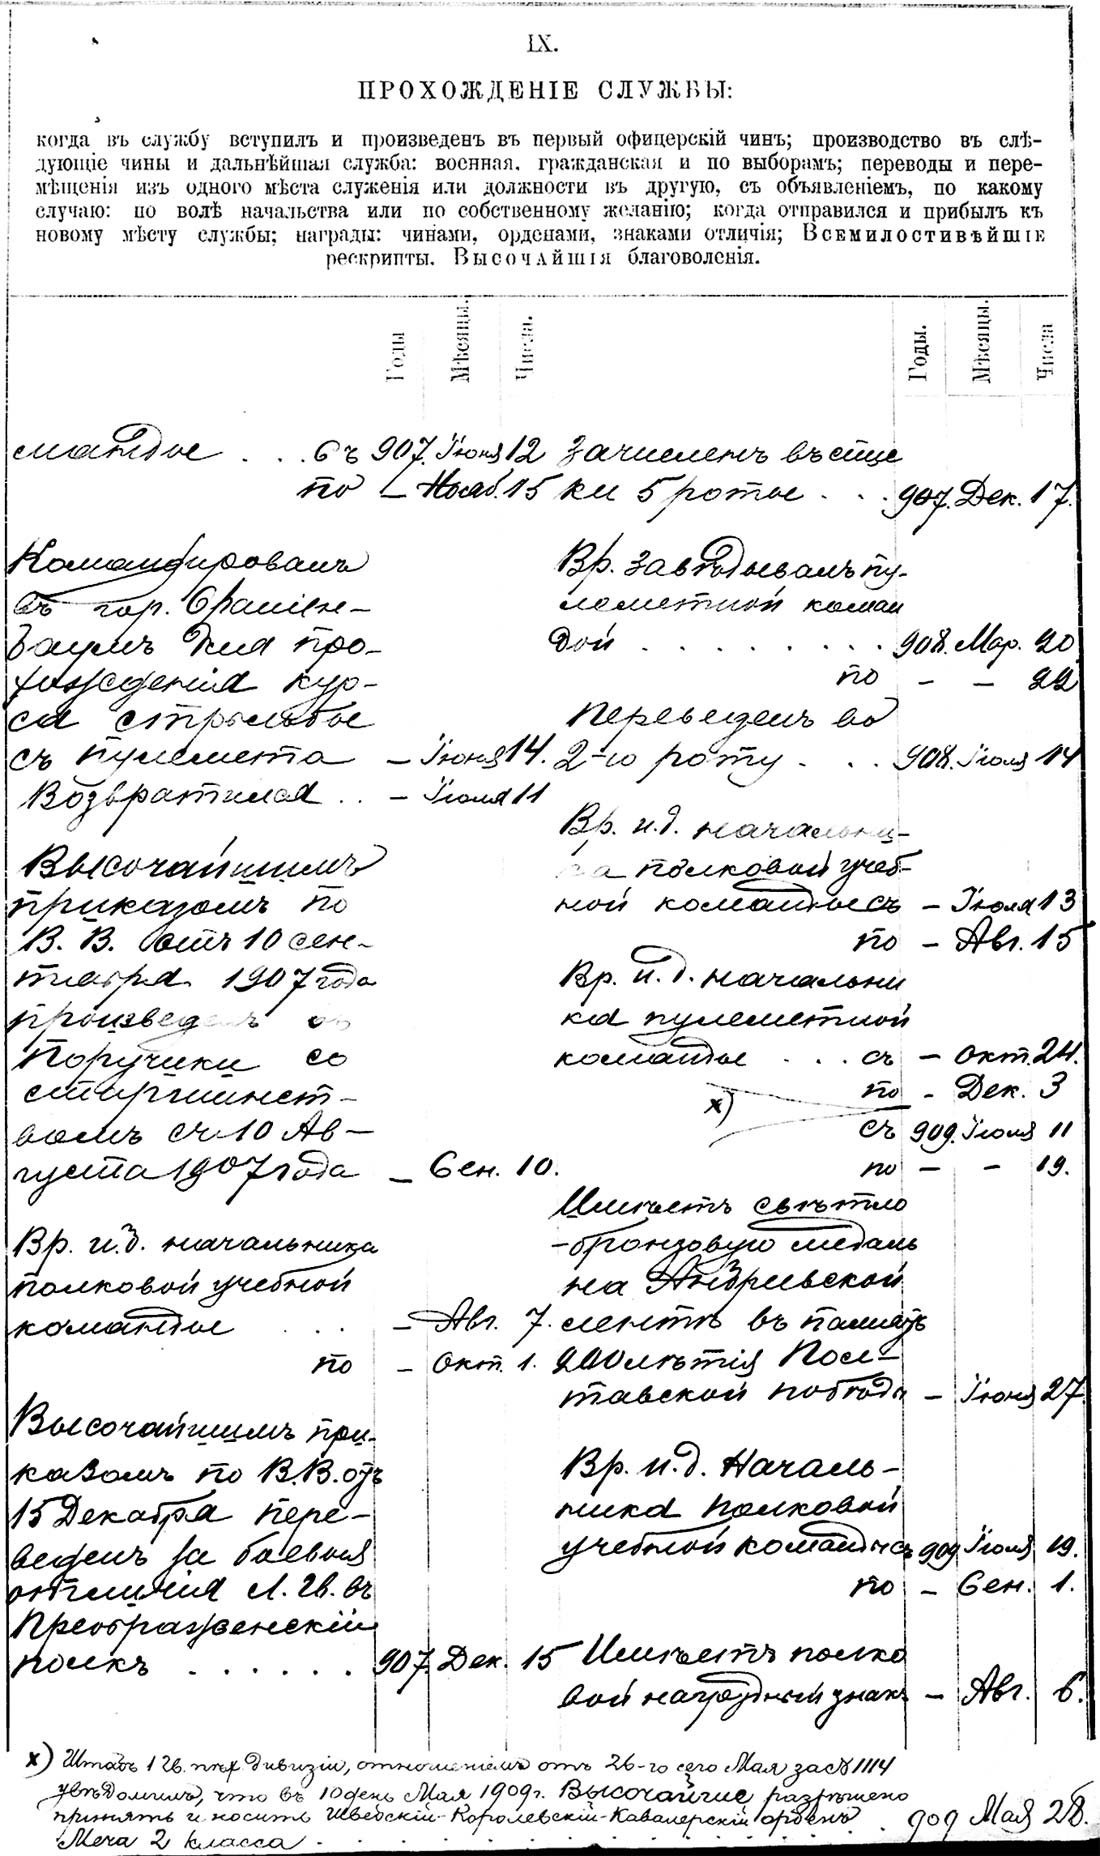 IX.
ПРОХОЖДЕНІЕ СЛУЖБЫ:
когда въ службу вступилъ и произведенъ въ первый офицерскій чинъ; производство въ слѣ-
дующіе чины и дальнѣйшая служба: военная, гражданская и по выборамъ; переводы и пере-
мѣщенія изъ одного мѣста служенія или должности въ другую, съ объявленіемъ, по какому
случаю: по волѣ начальства или по собственному желанію; когда отправился и прибылъ къ
новому мѣсту службы; награды: чинами, орденами, знаками отличія; ВСЕМИЛОСТИВѢЙШІЕ
рескрипты. ВЫСОЧАЙШІЯ благоволенія.
Годы Мѣсяцы. Числа.
мандѣ . . . Съ 907. Іюня 12
по — Нояб. 15
Командированъ
въ гор. Ораніен-
баумъ для про-
хожденія кур-
са стрѣльбы
съ пулемета — Іюня 14.
Возвратился . . — Іюля 11
Высочайшимъ
приказомъ по
В. В. отъ 10 сен-
тября 1907 года
произведенъ въ
Поручики со
старшинст-
вомъ съ 10 Ав-
густа 1907 года — Сен. 10.
Вр. и. д. начальника
полковой учебной
командѣ . . . — Авг. 7.
по — Окт. 1.
Высочайшимъ при-
казомъ по В. В. отъ
15 Декабря пере-
веденъ за боевыя
отличія Л. Гв. въ
Преображенскій
полкъ . . . . . . 907 Дек. 15
Годы. Мѣсяцы. Числа
Зачисленъ въ спис
ки 5 роты . . . 907. Дек. 17.
Вр. завѣдывалъ пу-
леметной коман
дой . . . . . . . . . 908. Мар. 20
по — — 22
Переведенъ во
2-ю роту . . . 908. Іюля 14
Вр. и. д. начальни-
ка полковой учеб-
ной команды съ — Іюля 13
по — Авг. 15
Вр. и. д. начальни
ка пулеметной
команды . . . съ — Окт. 24.
х) по — Дек. 3
съ 909. Іюля 11
по — — 19.
Имѣетъ свѣтло
-бронзовую медаль
на Андреевской
лентѣ въ память
200лѣтія Пол-
тавской побѣды — Іюня 27.
Вр. и. д. Началь-
ника полковой
учебной команды съ 909 Іюля 19.
по — Сен. 1.
Имѣетъ полко
вой нагрудный знакъ — Авг. 6.
х) Штабъ 1 Гв. пѣх. дивизіи, отношеніемъ отъ 26-го сего Мая за № 1114
увѣдомилъ, что въ 10 день Мая 1909 г. Высочайше разрѣшено
принять и носить Шведскій-Королевскій-Кавалерскій орденъ
Меча 2 класса . . . . . . . . . . . . 909 Мая 28.